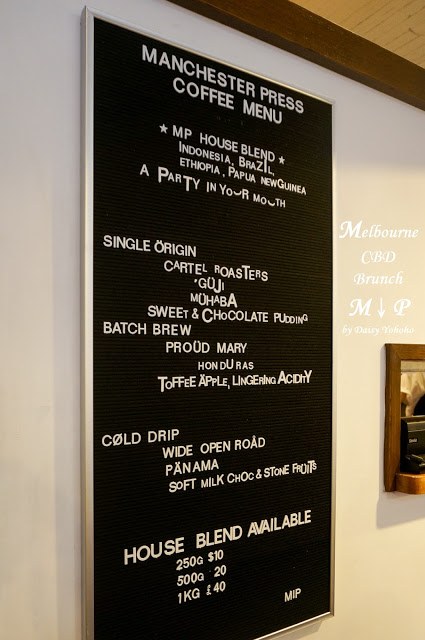 MANCHESTER PRESS
COFFEE MENU
★ MP HOUSE BLEND ★
INDONESIA, BRAZIL,
ETHIOPIA, PAPUA NEWGUINEA
A PARTY IN YOUR MOUTH
SINGLE ÖRIGIN
CARTEL ROASTERS
"GÜJI
MÜHABA
SWEET & CHOCOLATE PUDDING
BATCH BREW
PROÜD MARY
HONDURAS
TOFFEE ÄPPLE, LINGERING ACIDITY
CØLD DRIP
WIDE OPEN ROÄD
PÄNAMA
SOFT MILK CHOC & STONE FRUITS
HOUSE BLEND AVAILABLE
250G $10
500G 20
1KG £40
MIP
Melbourne
CBD
Brunch
M↓P
by Daisy Yohoho